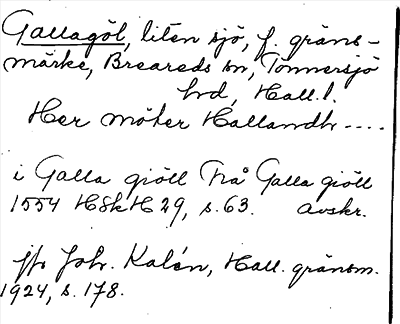 Gallagöl, liten sjö, f. gräns-
märke, Breareds sn, Tönnersjö
hd, Hall. l.
Her möter Hallandh ----
i Galla giöll Frå Galla giöll
1554 HSkH 29, s. 63. avskr.
jfr Joh. Kalén, Hall. gränsm.
1924, s. 178.